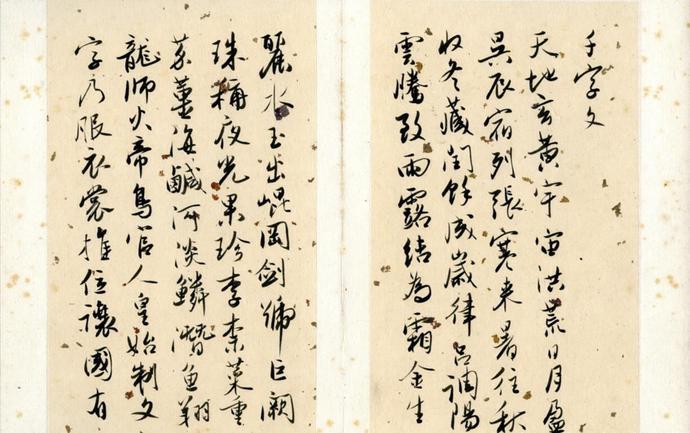 千字文
天地玄黃宇宙洪荒日月盈
昃辰宿列張寒来暑往秋
收冬藏閏餘成歲律呂調陽
雲騰致雨露結為霜金生
麗水玉出崐岡劍號巨闕
珠稱夜光果珍李柰菜重
芥薑海鹹河淡鱗潛羽翔
龍師火帝鳥官人皇始制文
字乃服衣裳推位讓國有